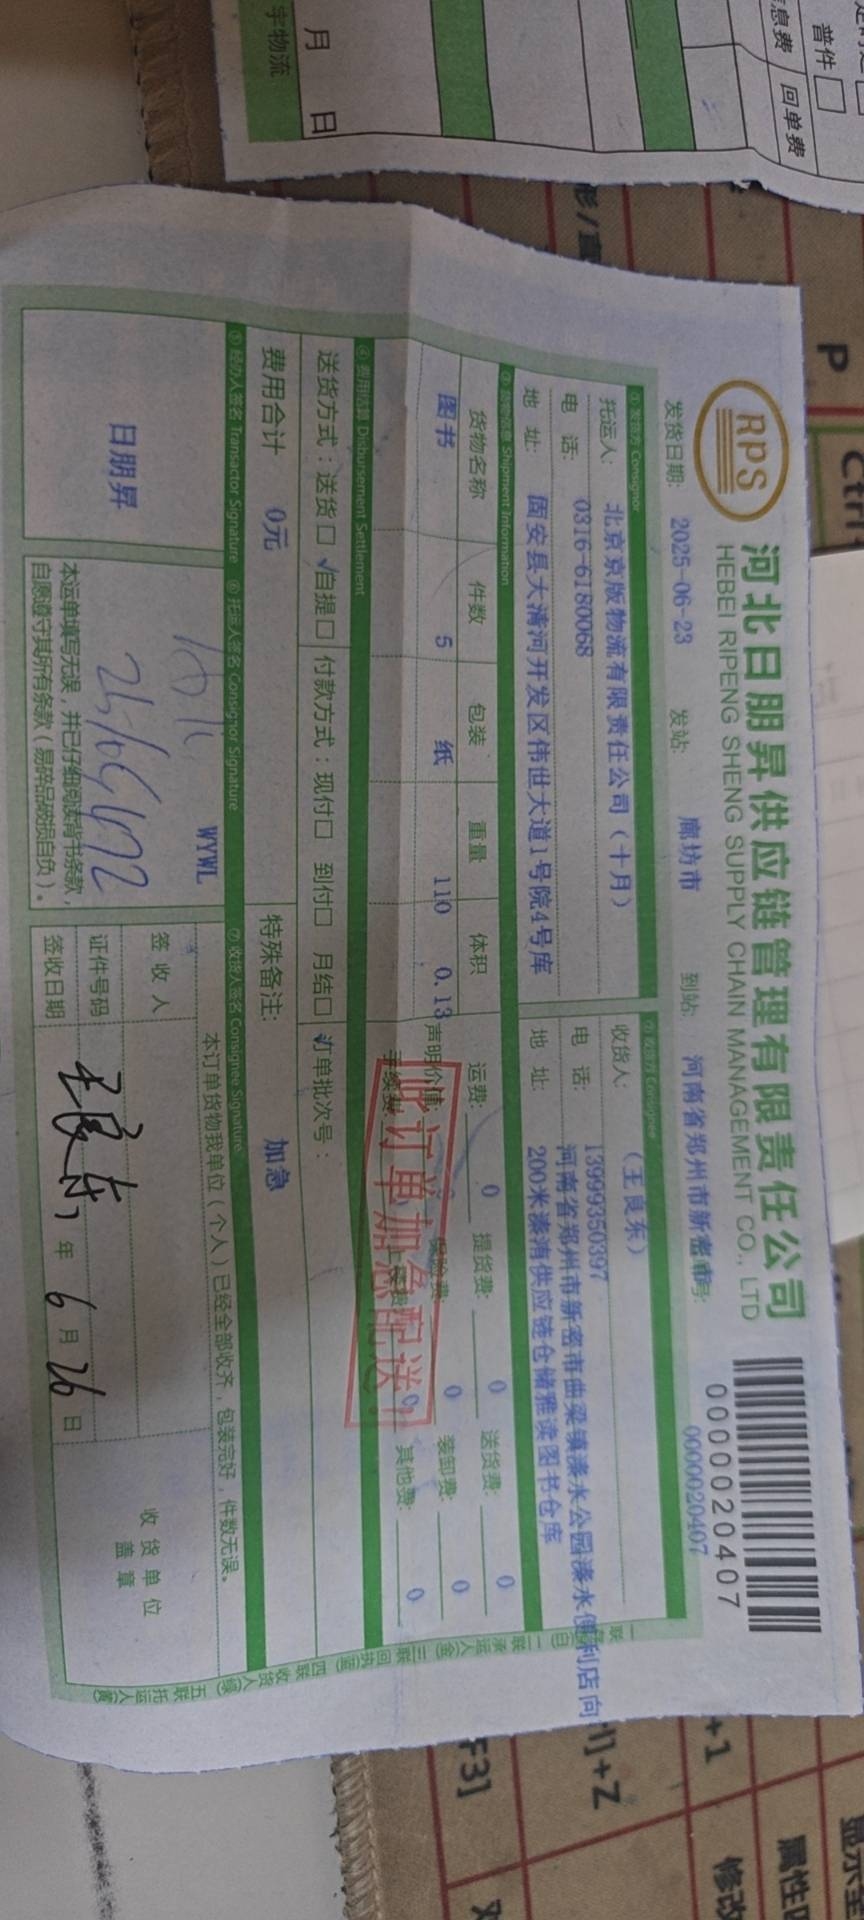 RPS
河北日朋昇供应链管理有限责任公司
HEBEI RIPENG SHENG SUPPLY CHAIN MANAGEMENT CO., LTD
0000020407
发货日期: 2025-06-23 发站: 廊坊市 到站: 河南省郑州市新密市 号: 0000020407
① 发货方 Consignor
托运人: 北京京版物流有限责任公司（十月）
电 话: 0316-6180068
地 址: 固安县大清河开发区伟世大道1号院4号库
② 收货方 Consignee
收货人: （王良东）
电 话: 13999350397
地 址: 河南省郑州市新密市曲梁镇溱水公园溱水便利店向
200米溱洧供应链仓储雅读图书仓库
③ 货物信息 Shipment Information
货物名称 件数 包装 重量 体积
图书 5 纸 110 0.13
运费: 0 提货费: 0 送货费: 0
声明价值: 保险费: 0 装卸费: 0
手续费: 上楼费: 0 其他费: 0
此订单加急配送!
④ 费用结算 Disbursement Settlement
送货方式：送货□ √自提□ 付款方式：现付□ 到付□ 月结□ √订单批次号：
费用合计 0元 特殊备注: 加急
⑤ 经办人签名 Transactor Signature ⑥ 托运人签名 Consignor Signature ⑦ 收货人签名 Consignee Signature
日朋昇
WYWL
本运单填写无误，并已仔细阅读背书条款，
自愿遵守其所有条款（易碎品破损自负）。
本订单货物我单位（个人）已经全部收齐，包装完好，件数无误。
签 收 人
证件号码
签收日期 王良东 年 6 月 26 日
收 货 单 位
盖 章
二联承运人(金) 三联回执(蓝) 四联收货人(绿) 五联托运人(黄)
月 日
宇物流
普件□
回单费
信息费
P
Ctrl+
F3]
+1
修改
属性匹
显示全